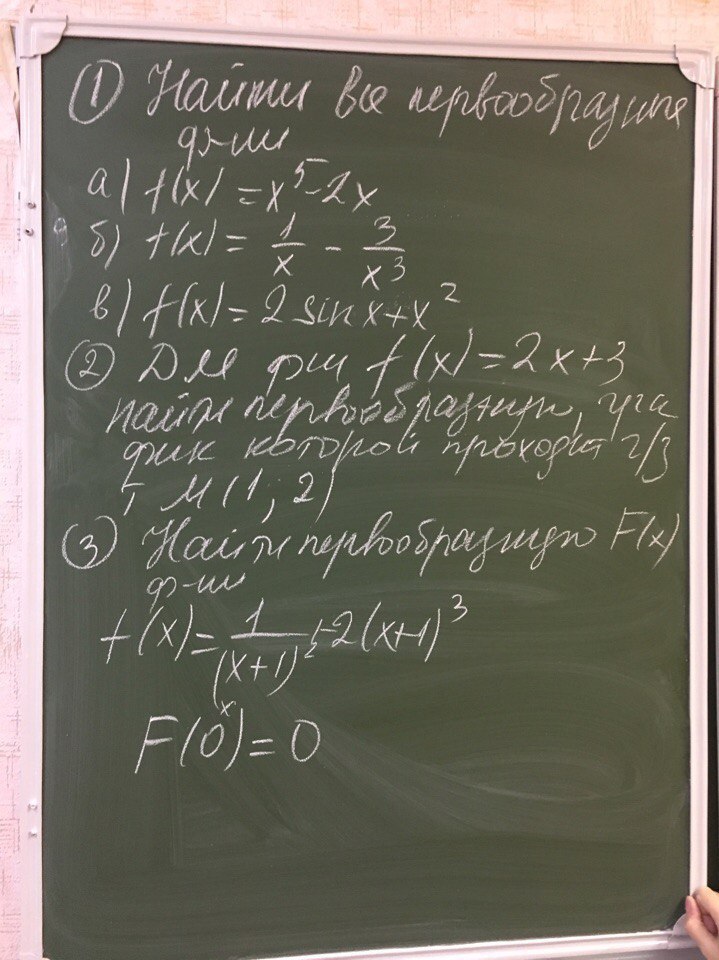 ① Найти все первообразные
ф-ии
а) f(x) = x⁵ - 2x
б) f(x) = 1/x - 3/x³
в) f(x) = 2 sin x + x²
② Для ф-ии f(x) = 2x + 3
найти первообразную, гра
фик которой проходит ч/з
т М(1; 2)
③ Найти первообразную F(x)
ф-ии
f(x) = 1/(x+1)² + 2(x+1)³
F(0) = 0